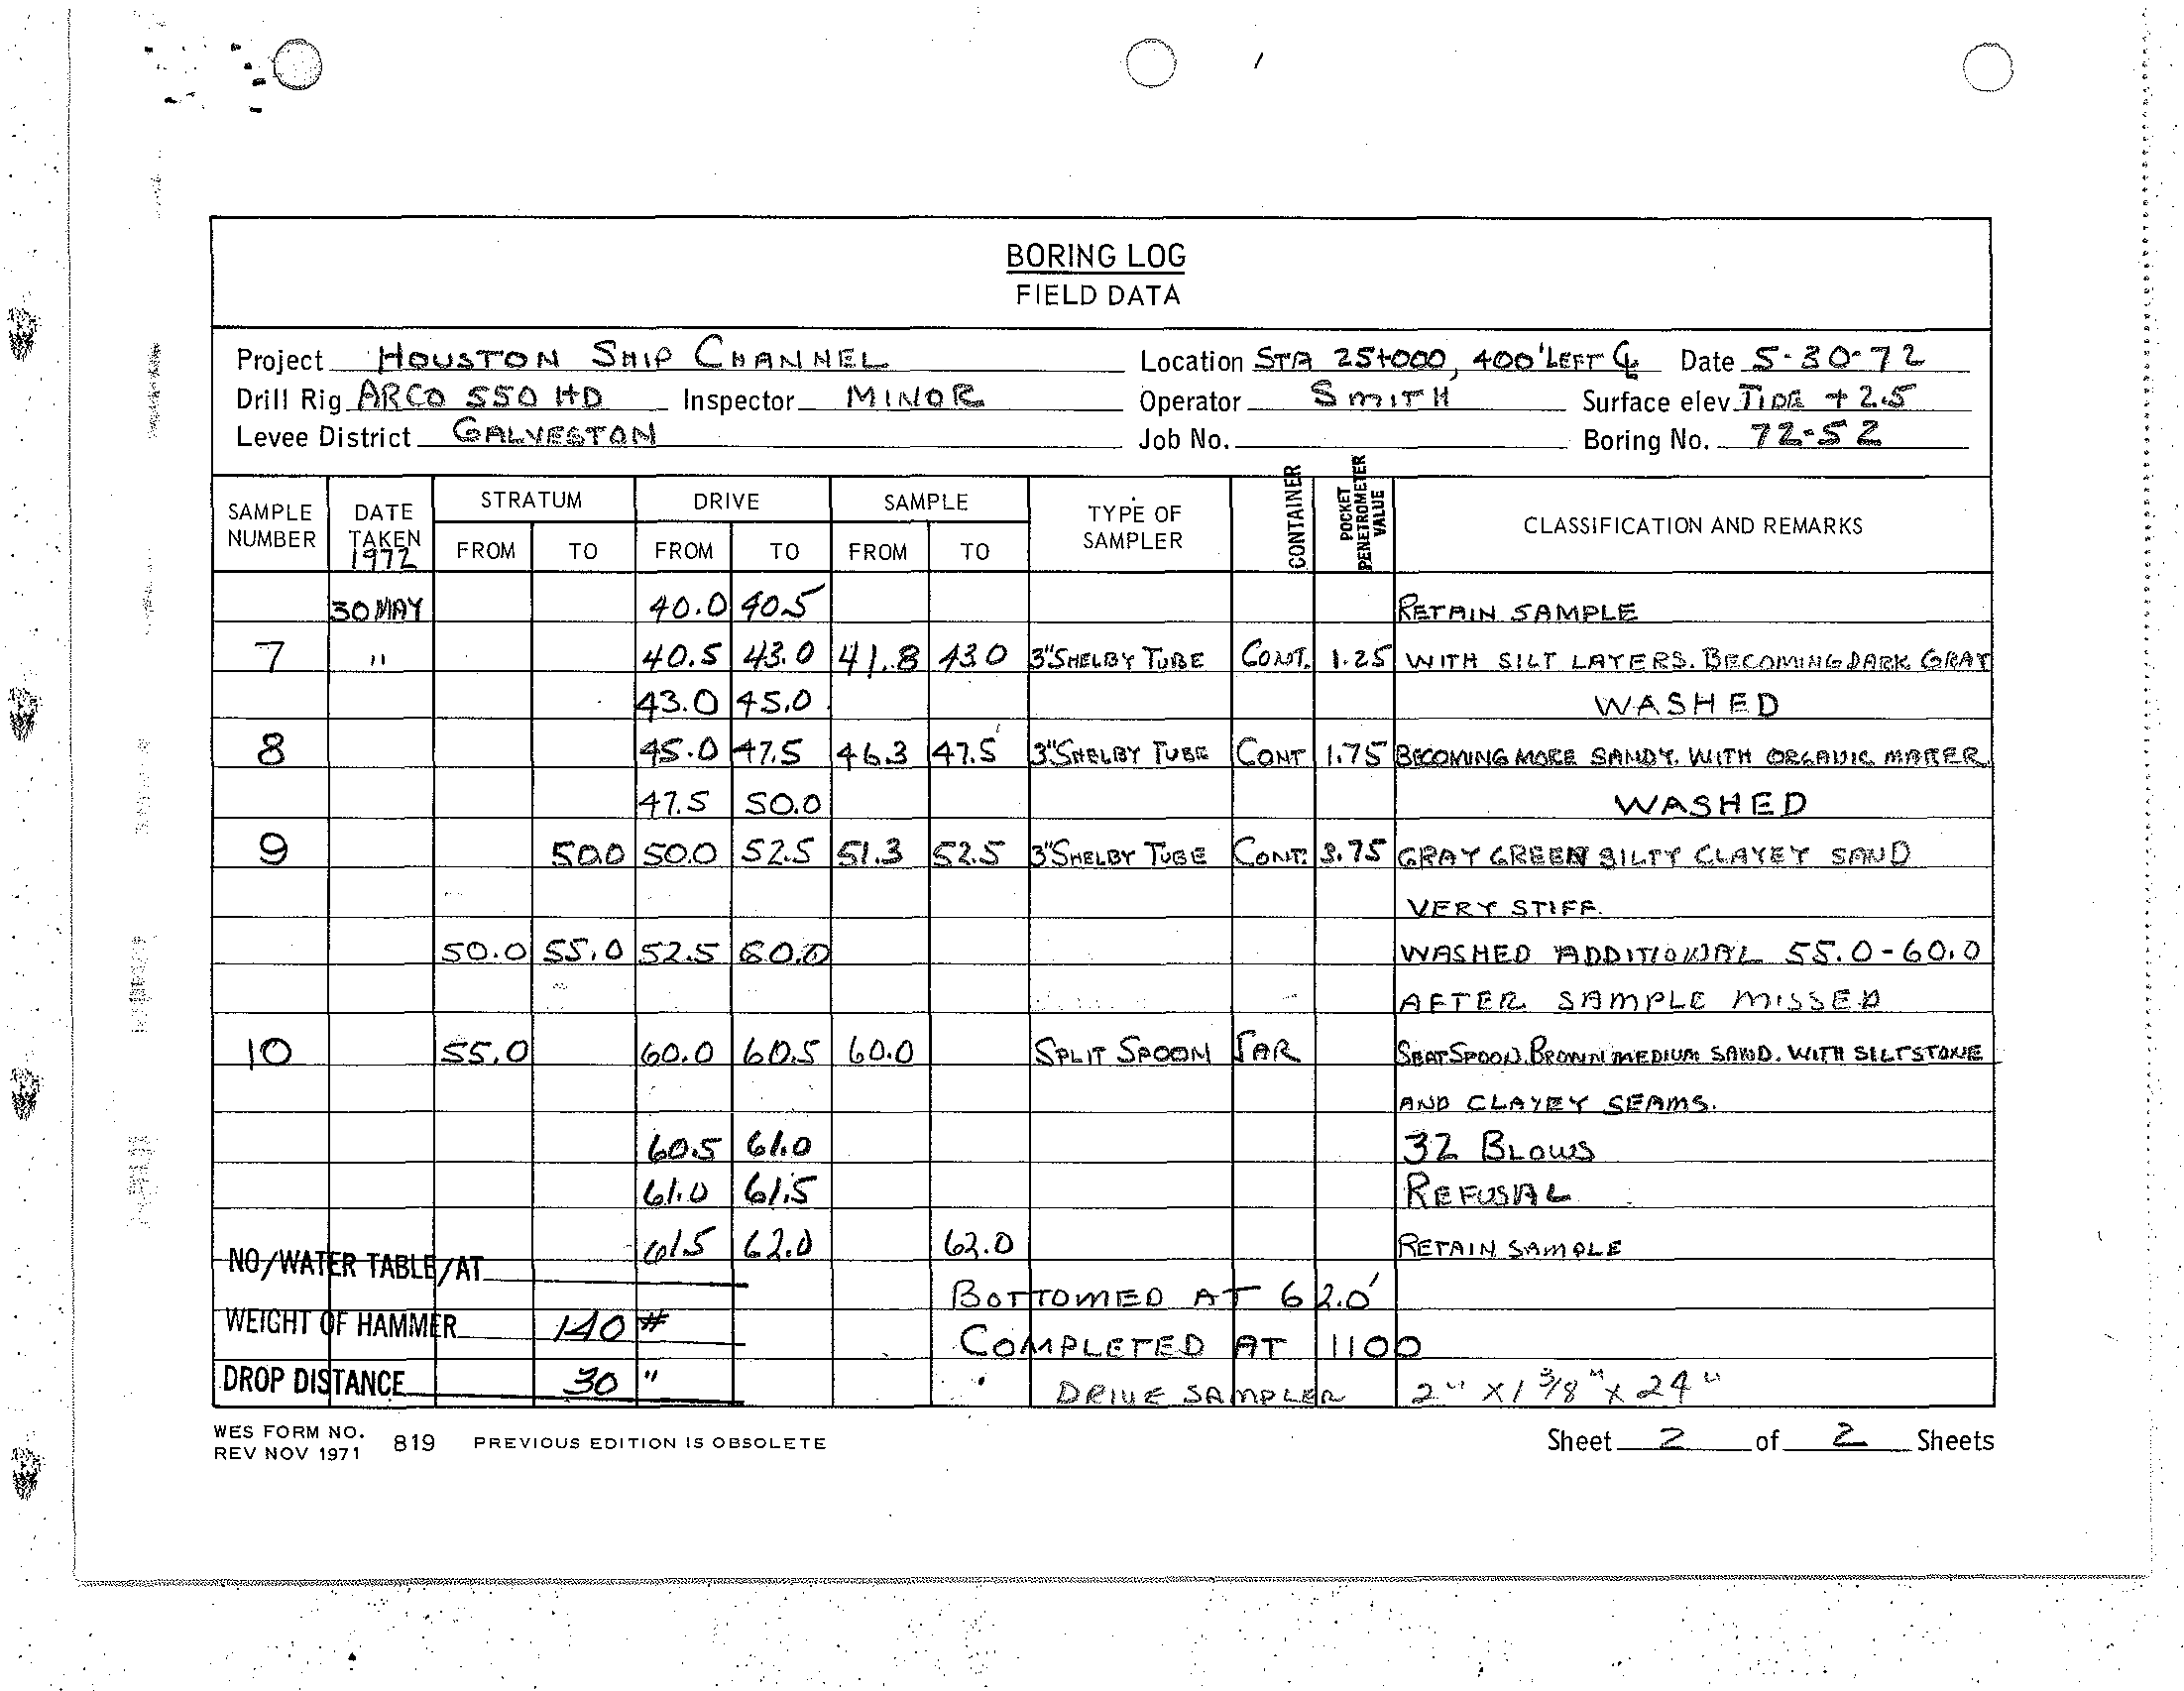 BORING LOG
FIELD DATA
Project HOUSTON SHIP CHANNEL Location STA 25+000, 400' LEFT ℄ Date 5-30-72
Drill Rig ARCO 550 HD Inspector MINOR Operator SMITH Surface elev TIDE + 2.5
Levee District GALVESTON Job No. Boring No. 72-52
SAMPLE NUMBER DATE TAKEN 1972 STRATUM FROM TO DRIVE FROM TO SAMPLE FROM TO TYPE OF SAMPLER CONTAINER POCKET PENETROMETER VALUE CLASSIFICATION AND REMARKS
30 MAY 40.0 40.5 RETAIN SAMPLE
7 " 40.5 43.0 41.8 43.0 3" SHELBY TUBE CONT. 1.25 WITH SILT LAYERS. BECOMING DARK GRAY
43.0 45.0 WASHED
8 45.0 47.5 46.3 47.5 3" SHELBY TUBE CONT 1.75 BECOMING MORE SANDY. WITH ORGANIC MATTER.
47.5 50.0 WASHED
9 50.0 50.0 52.5 51.3 52.5 3" SHELBY TUBE CONT. 3.75 GRAY GREEN SILTY CLAYEY SAND
VERY STIFF.
50.0 55.0 52.5 60.0 WASHED ADDITIONAL 55.0-60.0
AFTER SAMPLE MISSED
10 55.0 60.0 60.5 60.0 SPLIT SPOON JAR SEAT SPOON. BROWN MEDIUM SAND. WITH SILTSTONE
AND CLAYEY SEAMS.
60.5 61.0 32 BLOWS
61.0 61.5 REFUSAL
61.5 62.0 62.0 RETAIN SAMPLE
NO/WATER TABLE/AT
BOTTOMED AT 62.0'
WEIGHT OF HAMMER 140 #
COMPLETED AT 1100
DROP DISTANCE 30 "
DRIVE SAMPLER 2" X 1 3/8" X 24"
WES FORM NO. 819 PREVIOUS EDITION IS OBSOLETE
REV NOV 1971
Sheet 2 of 2 Sheets